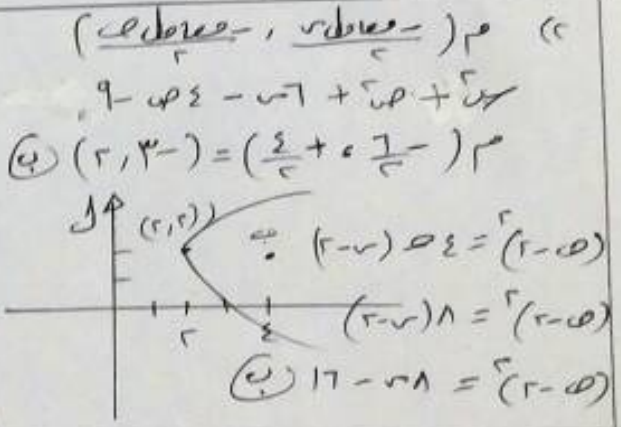 ٢) م ( -معامل س / ٢ , -معامل ص / ٢ )
س٢ + ص٢ + ٦س - ٤ص - ٩
م ( -٦/٢ ، +٤/٢ ) = (-٣ , ٢) (ب)
(٢,٢)
(ص-٢)٢ = ٤ه (س-٢)
(ص-٢)٢ = ٨(س-٢)
٢ ٤
(ص-٢)٢ = ٨س - ١٦ (ب)